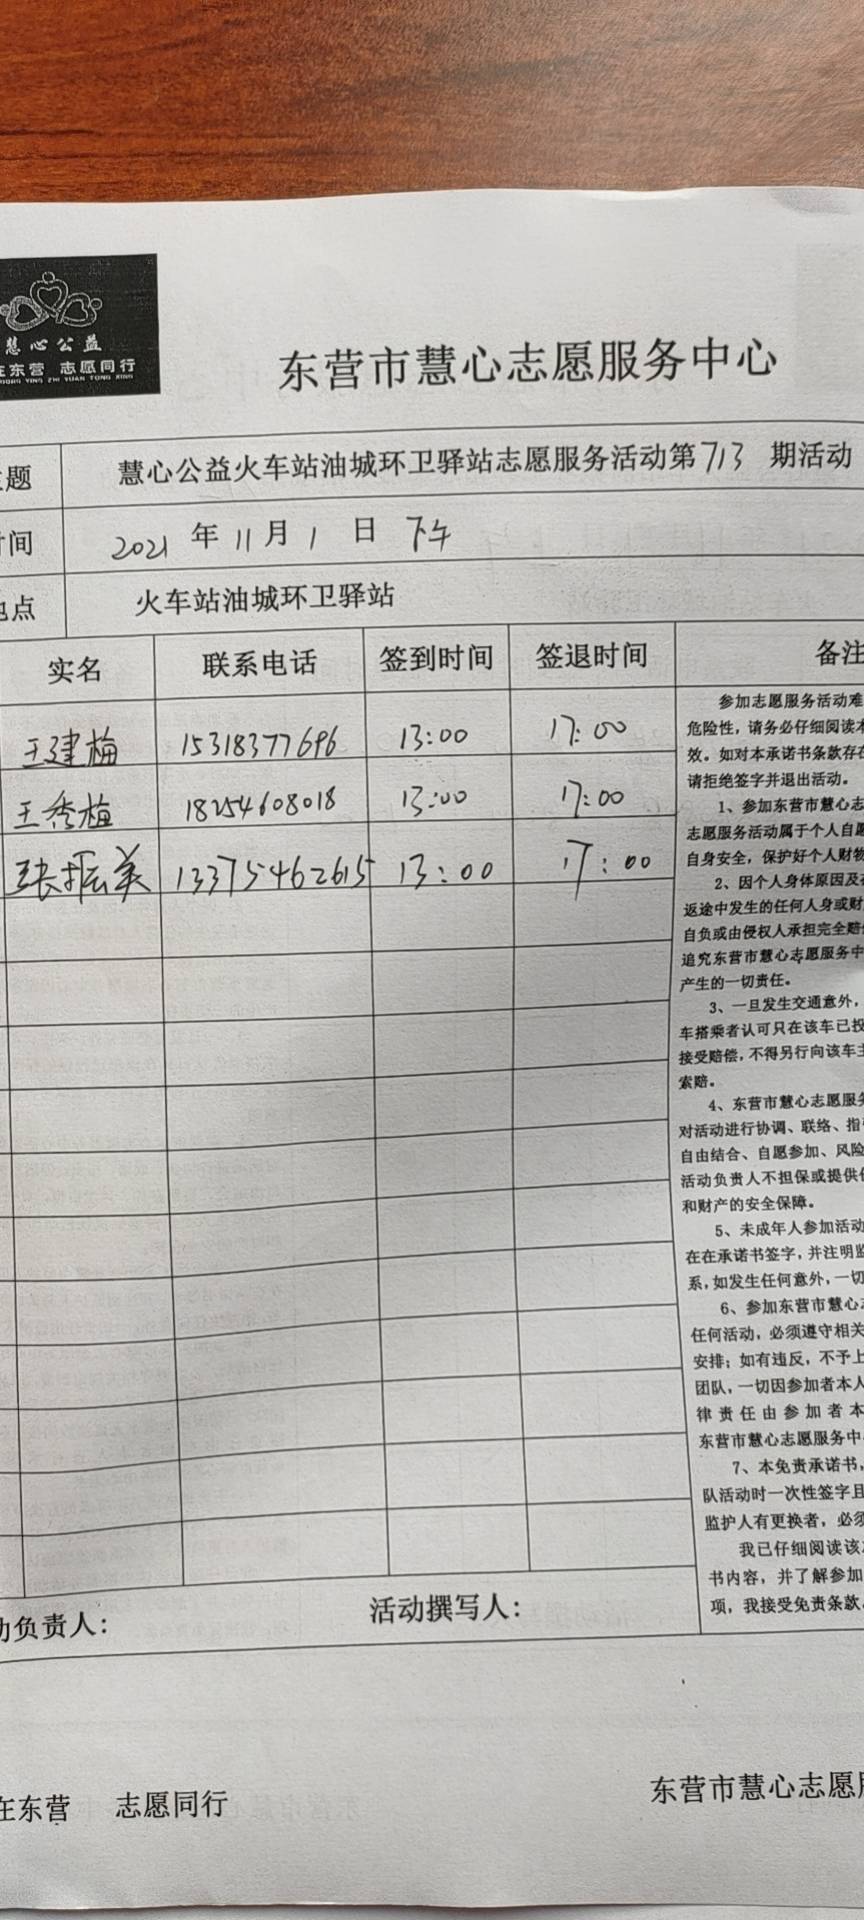 慧心公益
在东营 志愿同行
DONG YING ZHI YUAN TONG XING
东营市慧心志愿服务中心
主题 慧心公益火车站油城环卫驿站志愿服务活动第713 期活动
时间 2021 年 11 月 1 日 下午
地点 火车站油城环卫驿站
实名 联系电话 签到时间 签退时间 备注
王建梅 15318377696 13:00 17:00
王秀梅 18254608018 13:00 17:00
张振美 13375462615 13:00 17:00
参加志愿服务活动难
危险性，请务必仔细阅读本
效。如对本承诺书条款存在
请拒绝签字并退出活动。
1、参加东营市慧心志
志愿服务活动属于个人自愿
自身安全，保护好个人财物
2、因个人身体原因及在
返途中发生的任何人身或财
自负或由侵权人承担完全赔偿
追究东营市慧心志愿服务中
产生的一切责任。
3、一旦发生交通意外，
车搭乘者认可只在该车已投
接受赔偿，不得另行向该车主
索赔。
4、东营市慧心志愿服务
对活动进行协调、联络、指
自由结合、自愿参加、风险
活动负责人不担保或提供
和财产的安全保障。
5、未成年人参加活动
在在承诺书签字，并注明监
系，如发生任何意外，一切
6、参加东营市慧心志
任何活动，必须遵守相关
安排；如有违反，不予上
团队，一切因参加者本人
律责任由参加者本
东营市慧心志愿服务中
7、本免责承诺书，
队活动时一次性签字且
监护人有更换者，必须
我已仔细阅读该
书内容，并了解参加
项，我接受免责条款。
动负责人： 活动撰写人：
在东营 志愿同行
东营市慧心志愿服